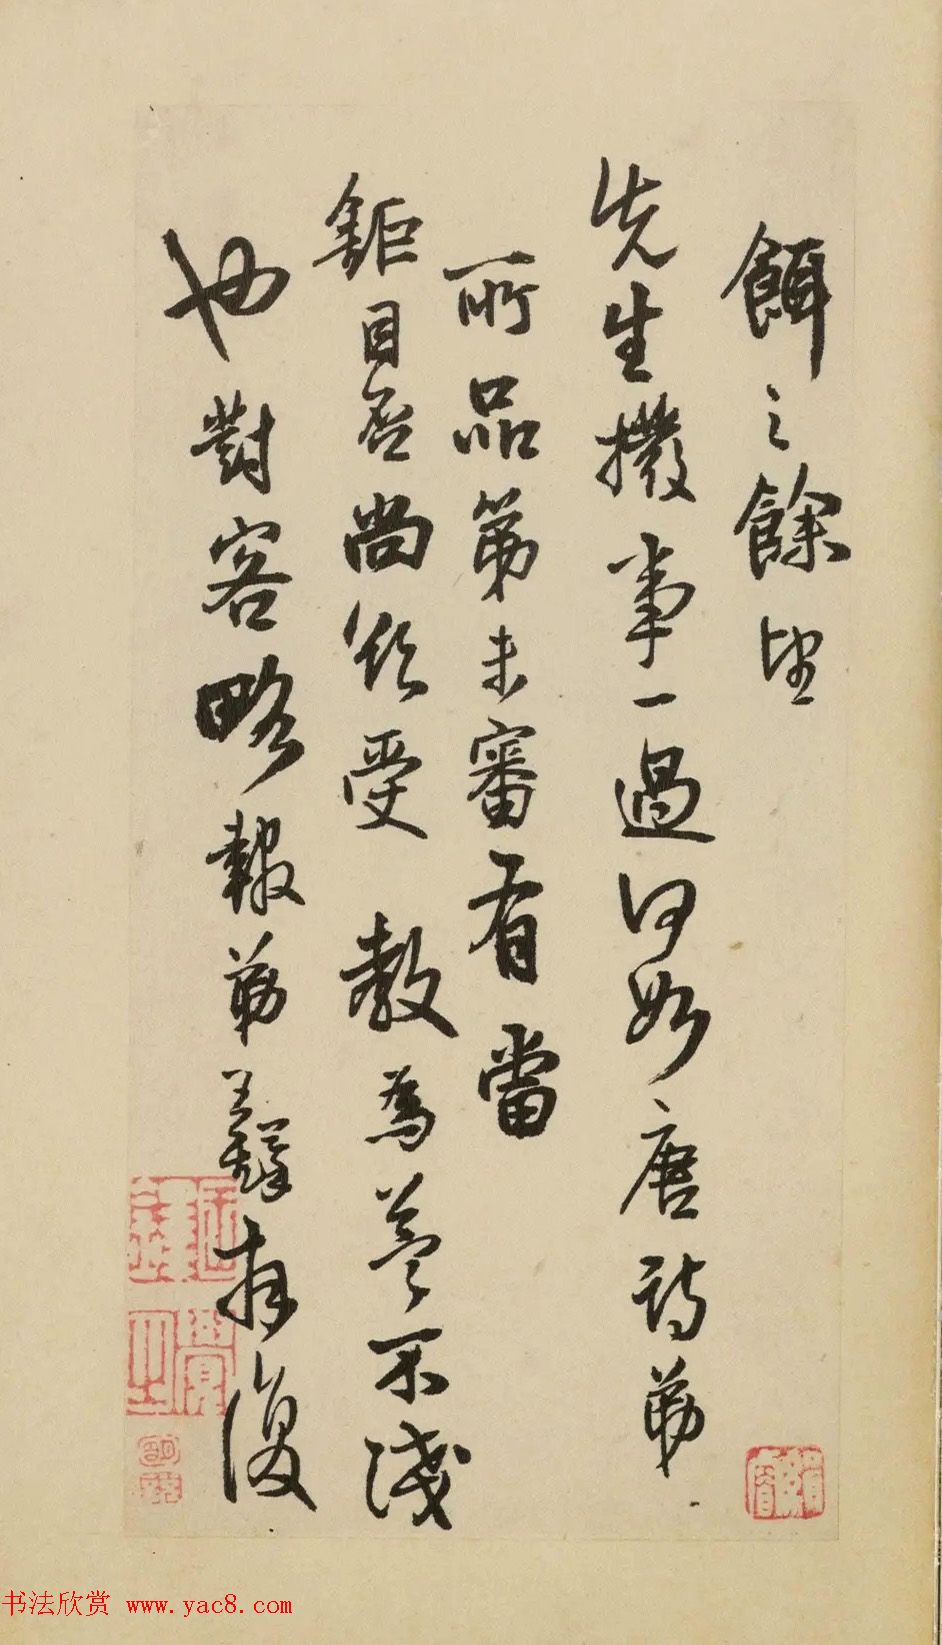 餌之餘望
先生撥事一過何如唐詩弟
所品第未審有當
鉅目否尚欲受教為益不淺
也對客略報弟王鐸有復
书法欣赏 www.yac8.com